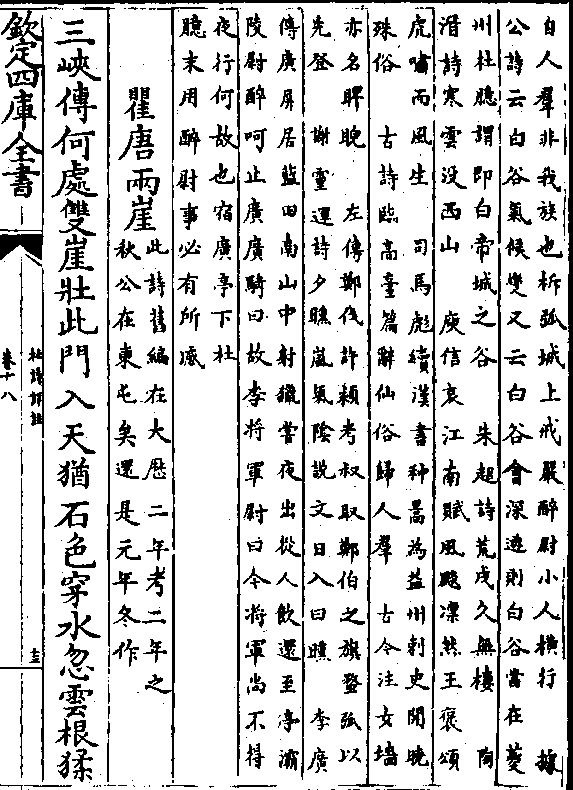 自人羣非我族也析弧城上戒嚴醉尉小人橫行　據
公詩云白谷氣候變又云白谷會深遊則白谷當在夔
州杜臆謂即白帝城之谷　朱超詩荒戍久無樓　陶
潛詩寒雲没西山　庾信哀江南賦風颸凛然王褒頌
虎嘯而風生　司馬彪續漢書种暠為益州刺史開曉
殊俗　古詩臨高臺篇辭仙俗歸人羣　古今注女墻
亦名睥睨　左傳鄭伐許頴考叔取鄭伯之旗蝥弧以
先登　謝靈運詩夕曛嵐氣陰説文日入曰曛　李廣
傳廣屏居藍田南山中射獵嘗夜出從人飲還至亭灞
陵尉醉呵止廣廣騎曰故李將軍尉曰今將軍尚不得
夜行何故也宿廣亭下杜
臆末用醉尉事必有所感
瞿唐兩崖
此詩舊編在大厯二年考二年之
秋公在東屯矣還是元年冬作
三峽傳何處雙崖壯此門入天猶石色穿水忽雲根猱
欽定四庫全書
杜詩詳註
卷十八